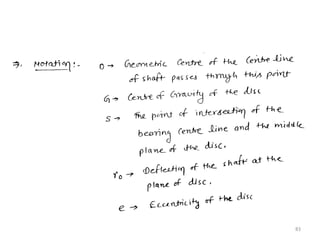 ⇒. Notation:- O → Geometric Centre of the Centre line
of shaft passes through this point
G → Centre of Gravity of the disc
S → The point of intersection of the
bearing Centre line and the middle
plane of the disc.
r₀ → Deflection of the shaft at the
plane of disc.
e → Eccentricity of the disc
83